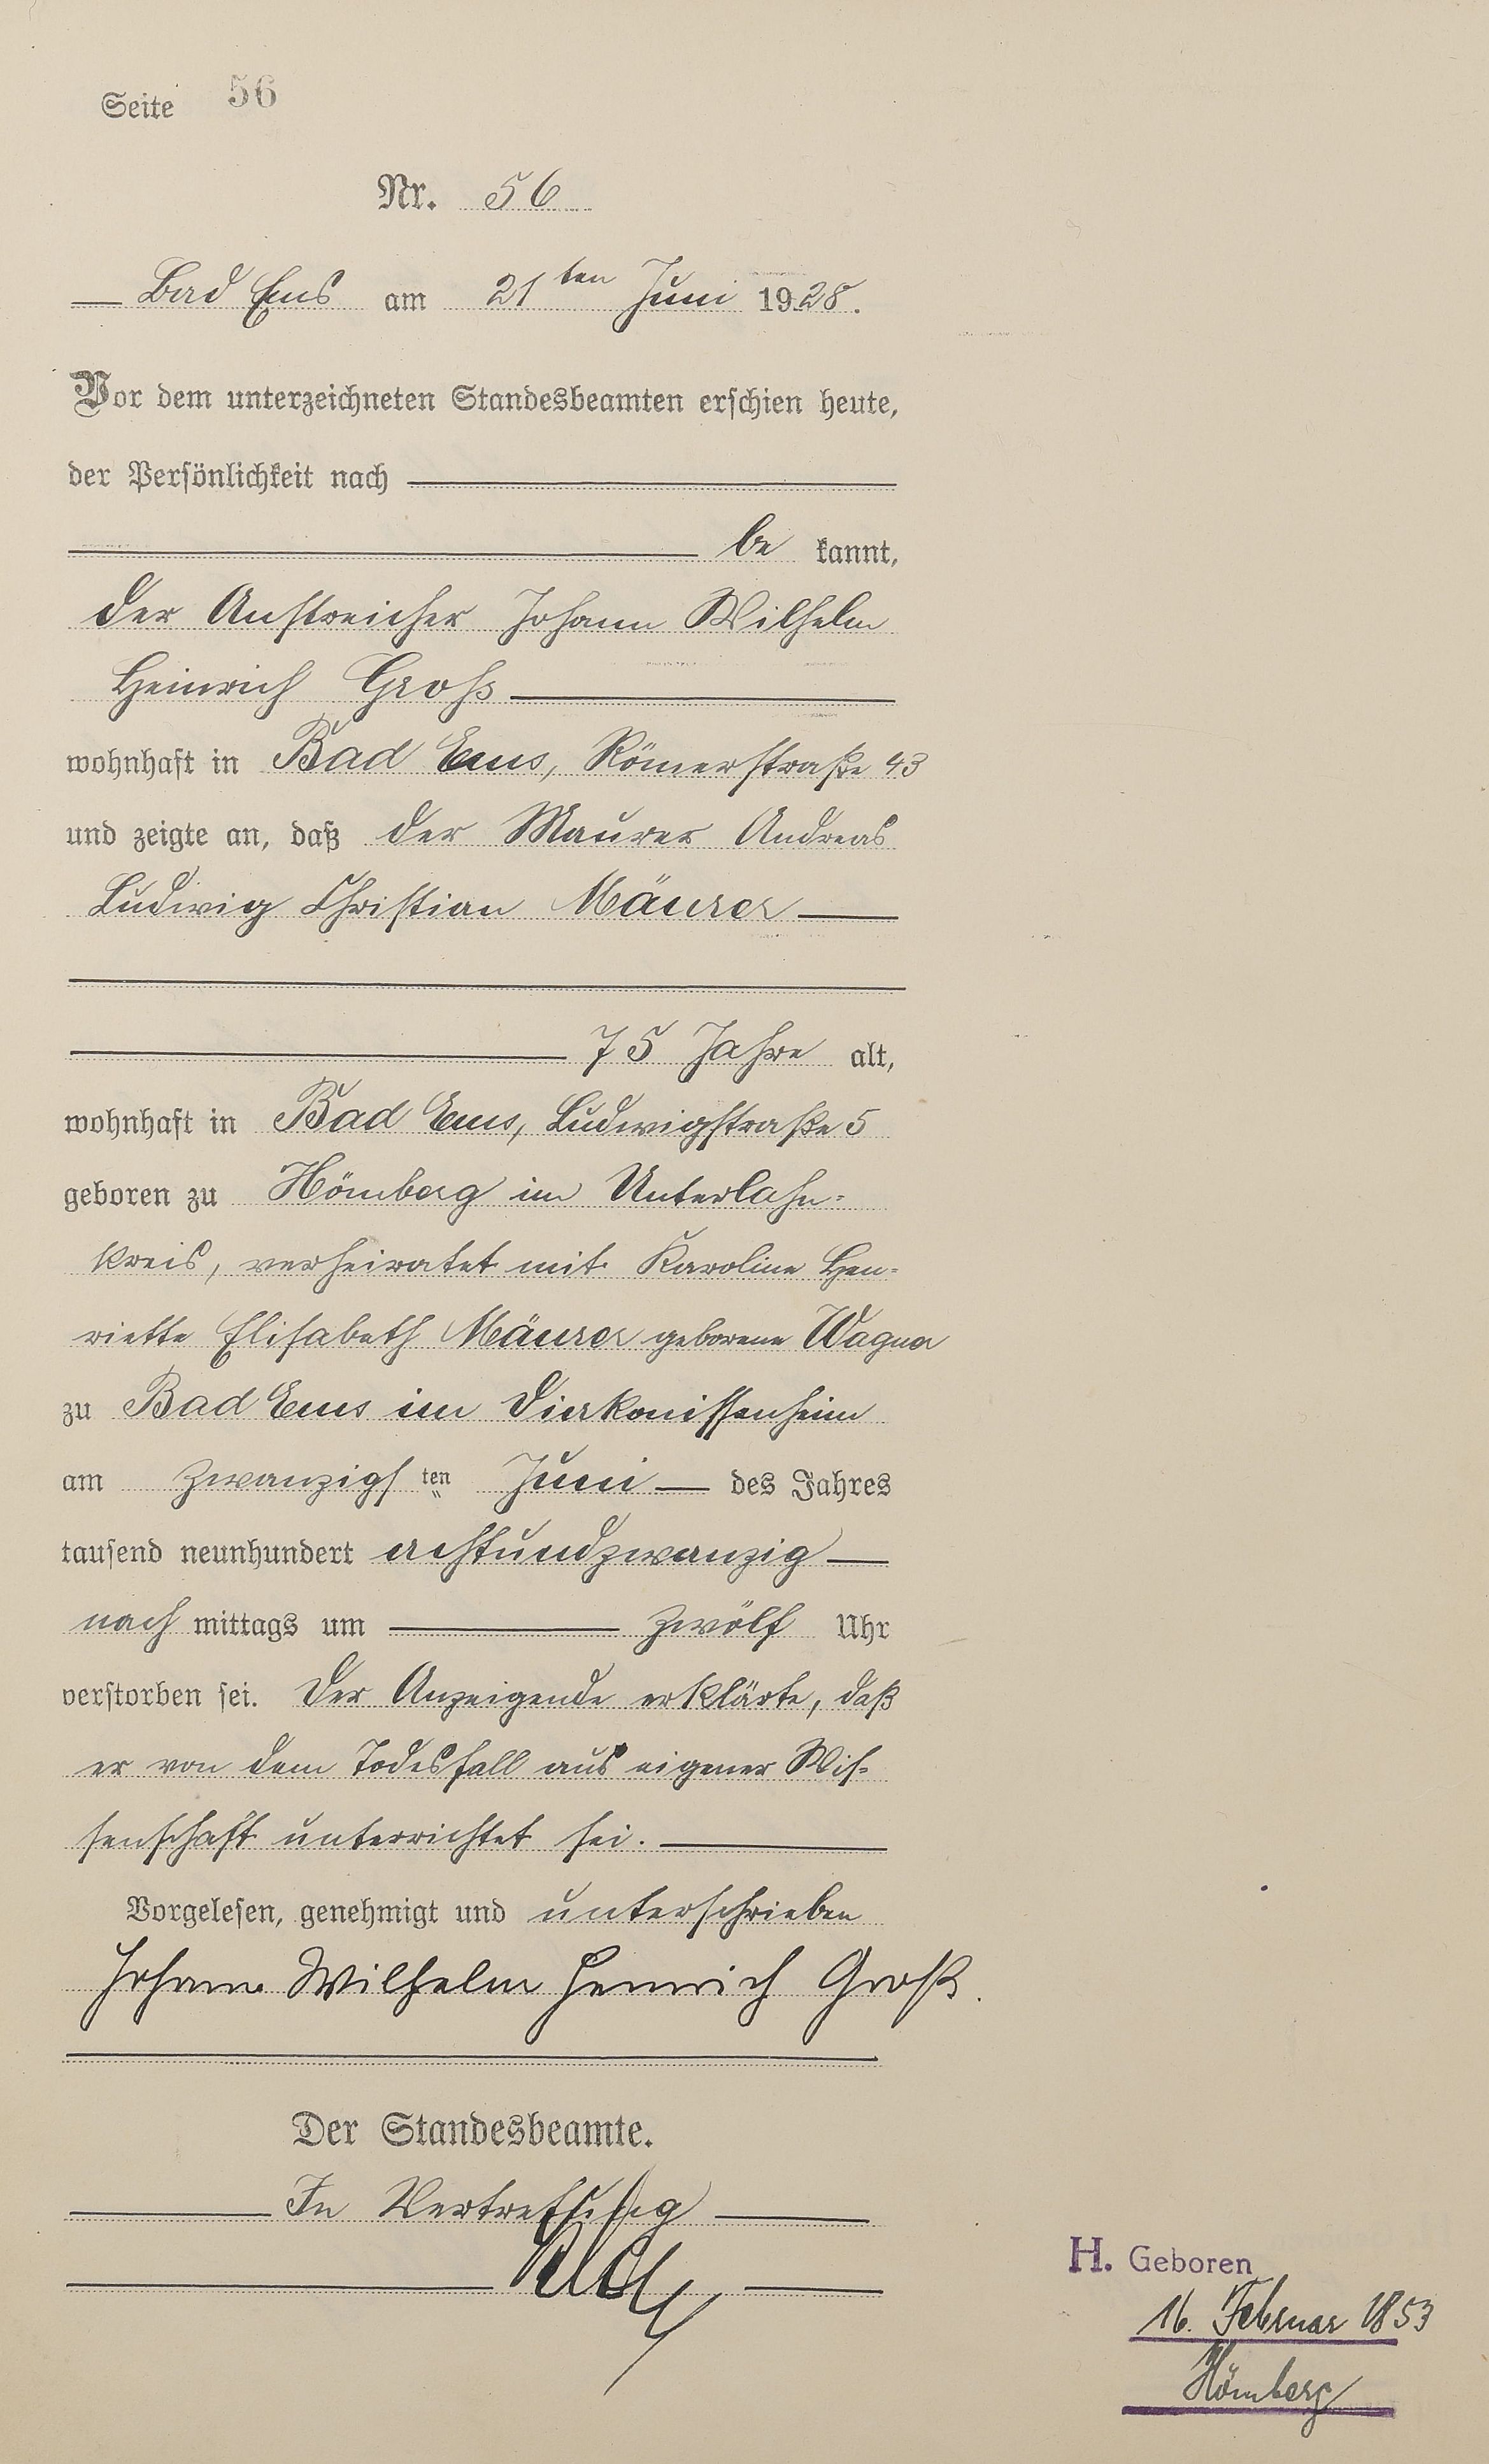 Seite 56
Nr. 56
Bad Ems am 21ten Juni 1928.
Vor dem unterzeichneten Standesbeamten erschien heute,
der Persönlichkeit nach
be kannt,
der Anstreicher Johann Wilhelm
Heinrich Groß
wohnhaft in Bad Ems, Römerstraße 43
und zeigte an, daß der Maurer Andreas
Ludwig Christian Mäurer
75 Jahre alt,
wohnhaft in Bad Ems, Ludwigstraße 5
geboren zu Hömberg im Unterlahn-
kreis, verheiratet mit Karoline Hen-
riette Elisabeth Mäurer geborene Wagner
zu Bad Ems im Diakonissenheim
am zwanzigsten Juni des Jahres
tausend neunhundert achtundzwanzig
nach mittags um zwölf Uhr
verstorben sei. Der Anzeigende erklärte, daß
er von dem Todesfall aus eigener Wis-
senschaft unterrichtet sei.
Vorgelesen, genehmigt und unterschrieben
Johann Wilhelm Heinrich Groß.
Der Standesbeamte.
In Vertretung
H. Geboren
16. Februar 1853
Hömberg